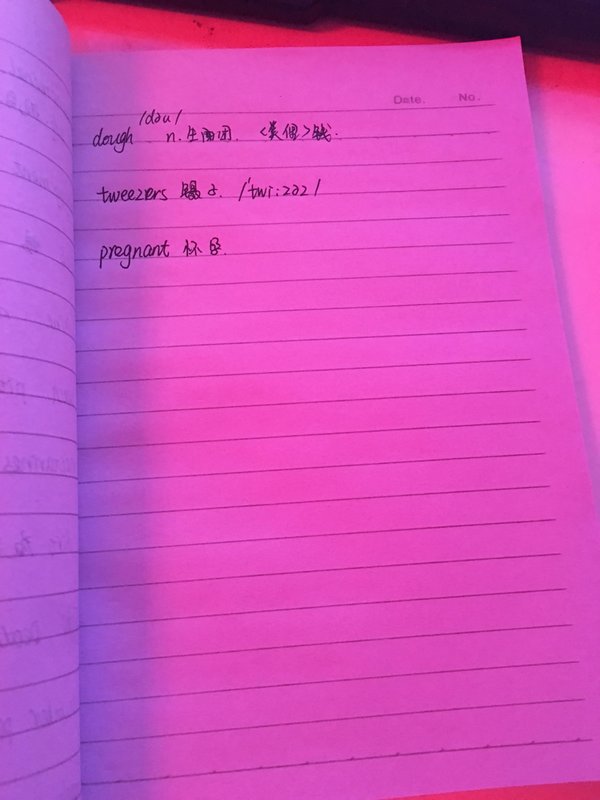 Date. No.
/dəu/
dough n.生面团. <美俚>钱.
tweezers 镊子. /'twi:zəz/
pregnant 怀孕.